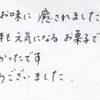 お味に 癒されました
も元気になる お菓子で
かったです
うございました.